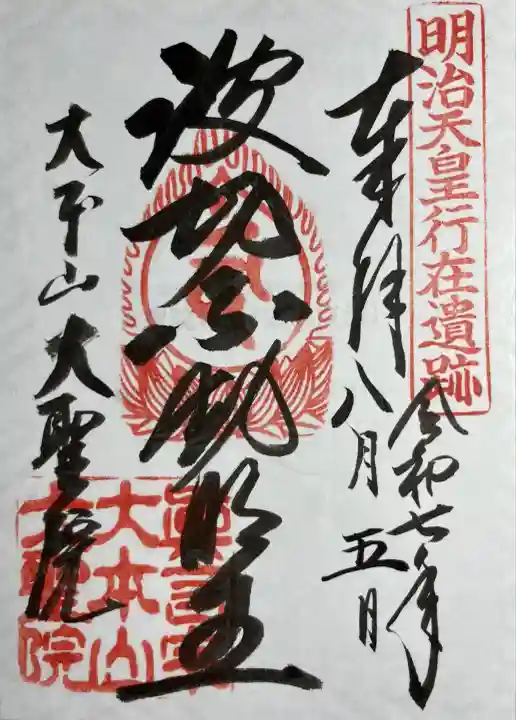 明治天皇行在遺跡
令和七年
奉拝 八月五日
波切不動明王
大本山大聖院
眞言宗
大本山
大聖院